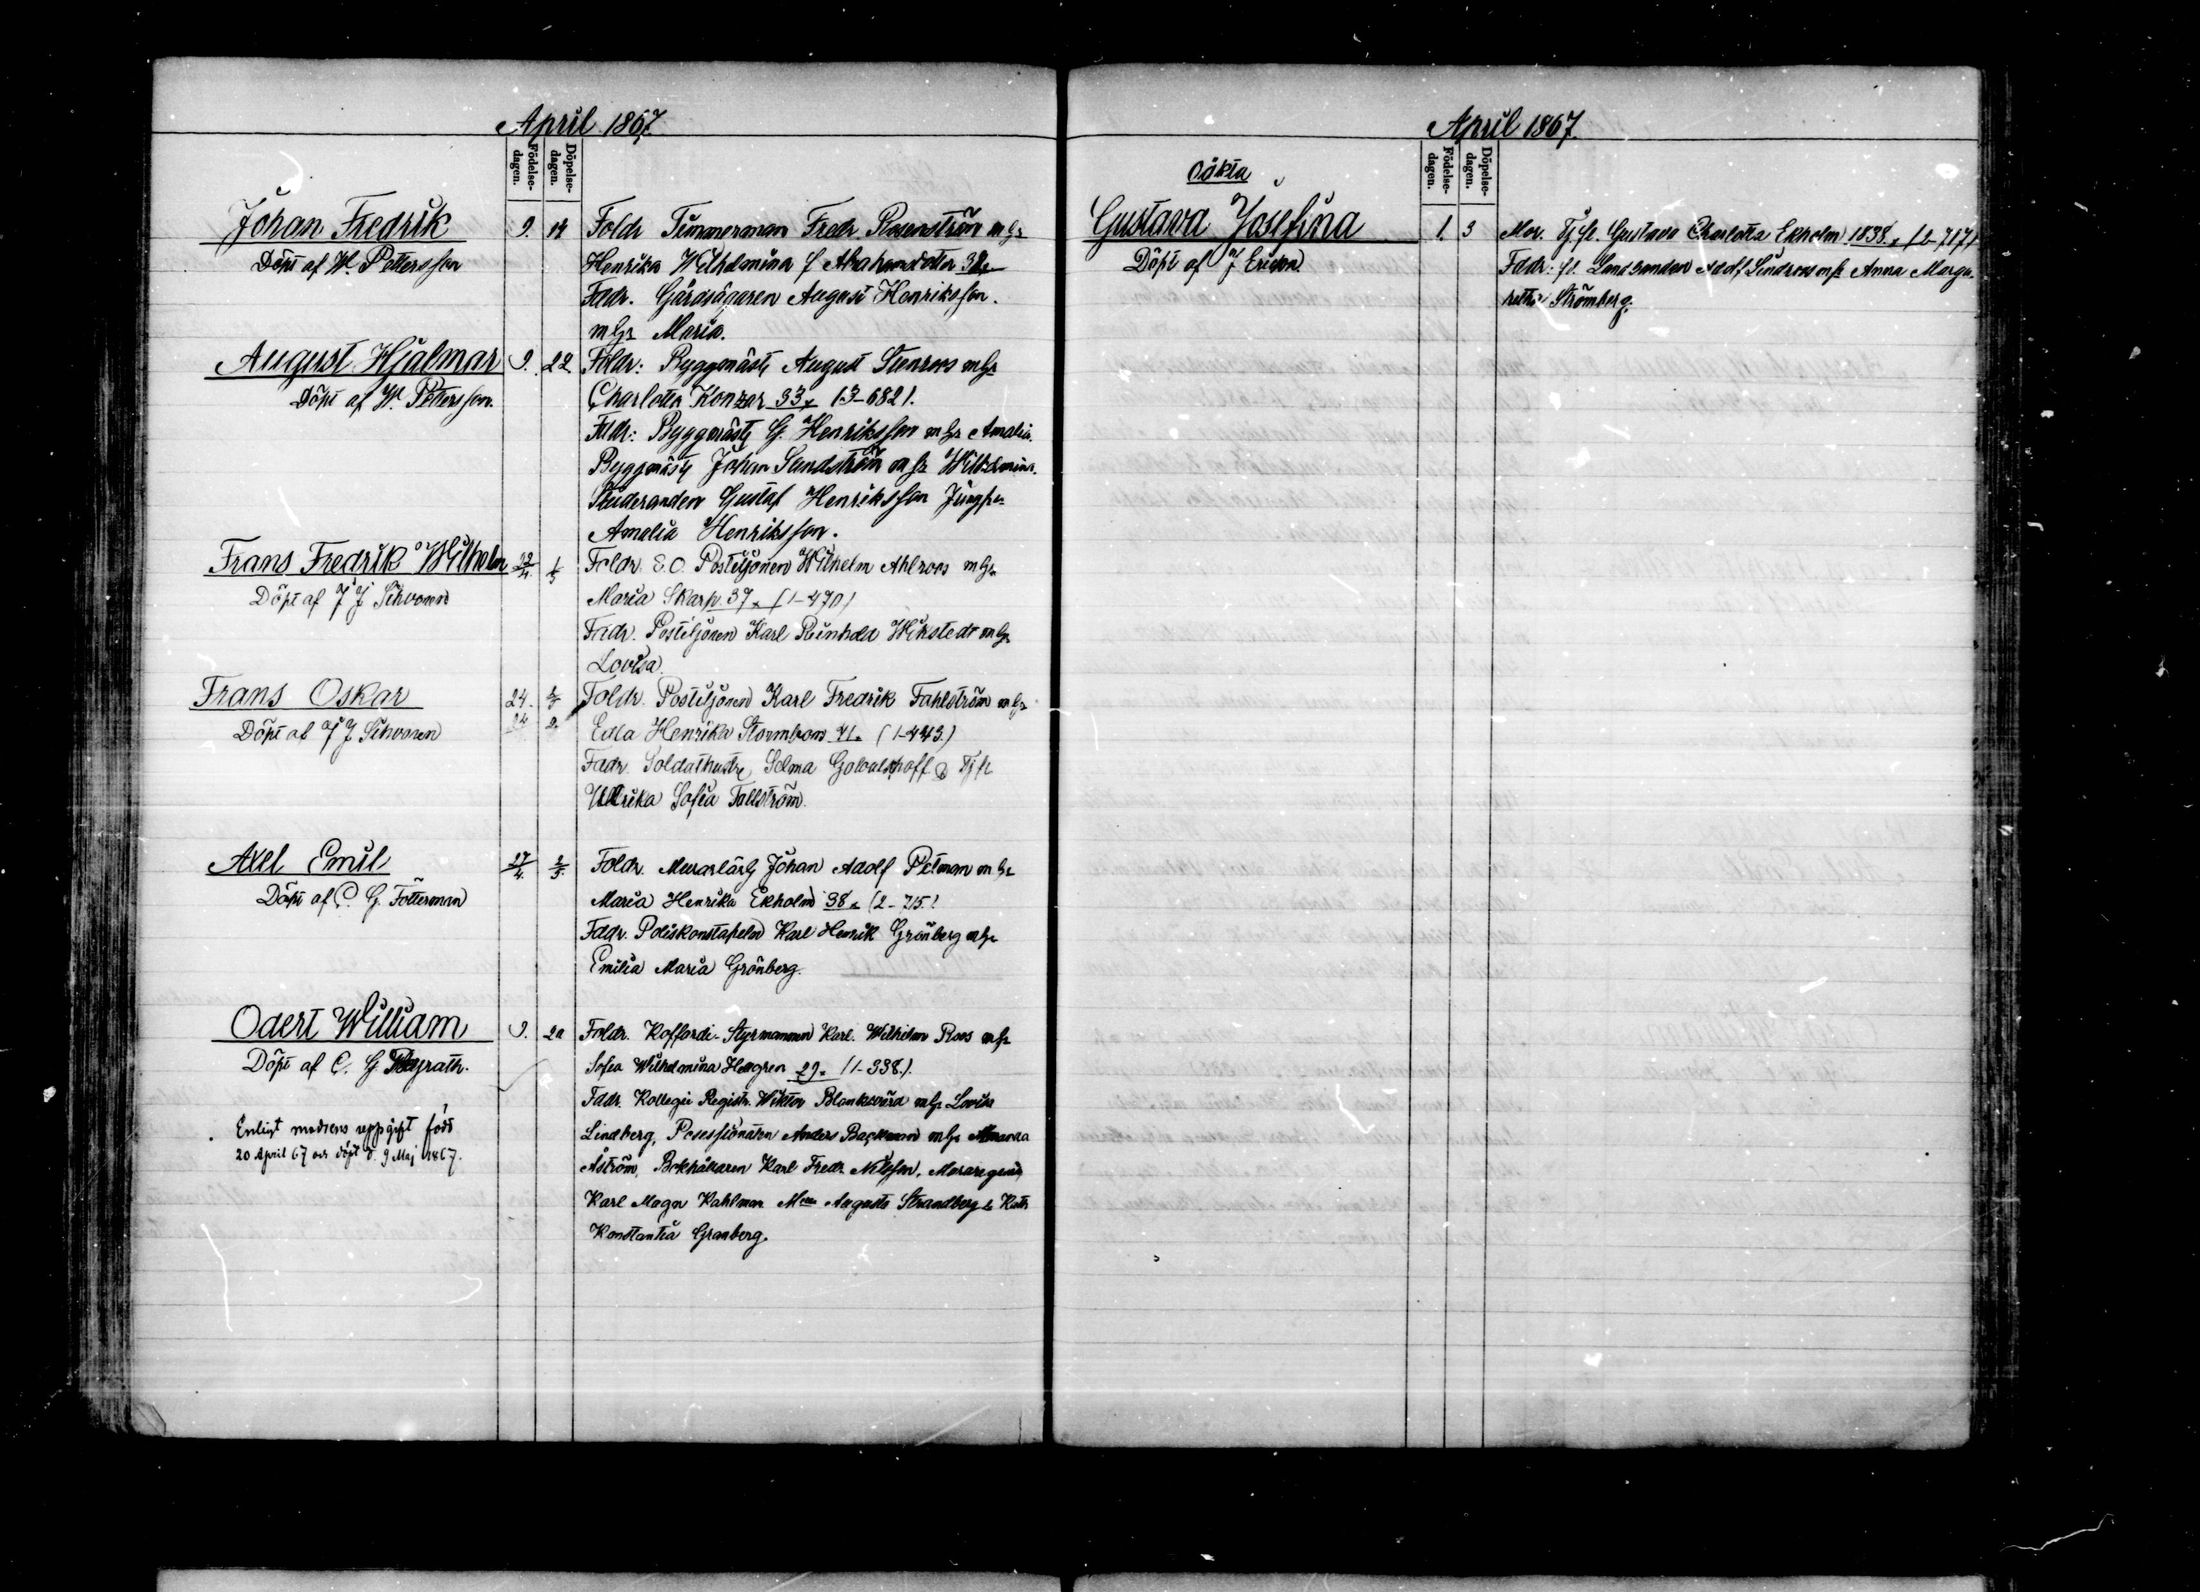 April 1867.
Födelse-
dagen.
Döpelse-
dagen.
Johan Fredrik
Döpt af W. Pettersson
9. 14
Földr Timmerman Fredr Rosenström m hr
Henrika Wilhelmina f Abrahamsdotter
Fadr. Gårdsägaren August Henriksson.
m hr Maria.
August Hjalmar
Döpt af W. Pettersson.
9. 22
Földr: Byggmäst August Stenroos m hr
Charlotta Konzar 33. (3-682).
Fadr: Byggmäst G. Henriksson m hr Amalia.
Byggmäst Johan Sandström m hr Wilhelmina.
Studeranden Gustaf Henriksson Jungfr
Amalia Henriksson.
Frans Fredrik Wilhelm
Döpt af J J Sihvonen
1/5
Földr. E.O. Postiljonen Wilhelm Ahlroos m hr
Maria Skarp. 37. (1-470)
Fadr. Postiljonen Karl Reinhold Wikstedt m hr
Lovisa.
Frans Oskar
Döpt af J J Sihvonen
24. 2/5
24 2
Földr. Postiljonen Karl Fredrik Fahlström m hr
Edla Henrika Stormbom 41. (1-443.)
Fadr. Soldathustr Selma Golovatschoff & Tj fl
Ullrika Sofia Fallström.
Axel Emil
Döpt af C. G. Fotterman
27/4. 2/5.
Földr. Murarlärl Johan Adolf Petman m hr
Maria Henrika Ekholm 38. (2-715.)
Fadr. Poliskonstapeln Karl Henrik Grönberg m hr
Emilia Maria Grönberg.
Odert William
Döpt af C. G.
9. 20
Enligt modrens uppgift född
20 April 67 och döpt d. 9 Maj 1867.
Földr. Koffardi-Styrmannen Karl Wilhelm Roos m hr
Sofia Wilhelmina Hellgren 29. (1-338.).
Fadr. Kollegii Registr. Wiktor Blanksvärd m hr Lovisa
Lindberg, Possessionaten Anders Backman m hr Amanda
Åström, Bokhållaren Karl Fredr Nilsson,
Karl Magn Kahlman Augusta Strandberg & Kath
Konstantia Granberg.
April 1867
Födelse-
dagen.
Döpelse-
dagen.
Oäkta
Gustava Josefina
Döpt af J Ericson
1. 3
Mor. Tj fl. Gustava Charlotta Ekholm 1838. (2-717)
Fadr: f d. Landbonden Adolf Lindroos m hr Anna Marga-
retha Strömberg.